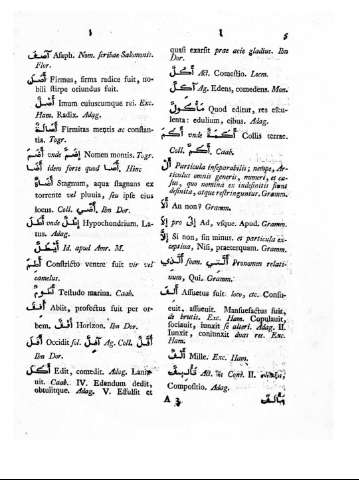 5
آصف Asaph. Nom. scribae Salomonis.
Fior.
أصل Firmus, firma radice fuit, no-
bili stirpe oriundus fuit.
أصل Imum cuiuscumque rei. Exc.
Ham. Radix. Adag.
أصالة Firmitas mentis ac constan-
tia. Togr.
Nomen montis. Togr.
idem forte quod أضا. Hinc
Stagnum, aqua stagnans ex
torrente vel pluvia, seu ipse eius
locus. Coll. Ibn Dor.
Hypochondrium. La-
tus. Adag.
Id. apud Amr. M.
Constricto ventre fuit vir vel
camelus.
Testudo marina. Caab.
Abiit, profectus fuit per or-
bem. أفق Horizon. Ibn Dor.
أفل Occidit sol. Ag. Coll.
Ibn Dor.
أكل Edit, comedit. Adag. Lani-
uit. Caab. IV. Edendum dedit,
obtulitque. Adag. V. Effulsit et
quasi exarsit prae acie gladius. Ibn
Dor.
أكل Act. Comestio. Locm.
Ag. Edens, comedens. Mon.
مأكول Quod editur, res escu-
lenta: edulium, cibus. Adag.
أكم unde أكمة Collis terrae.
Coll. Caab.
ال Particula inseparabilis; nempe, Ar-
ticulus omnis generis, numeri, et ca-
sus, quo nomina ex indefinitis fiunt
definita, atque restringuntur. Gramm.
ألا An non? Gramm.
إلا pro إلى Ad, vsque. Apud. Gramm.
إلا Si non, sin minus. et particula ex-
ceptiua, Nisi, praeterquam. Gramm.
الذي foem. التي Pronomen relati-
uum, Qui. Gramm.
ألف Assuetus fuit. loco, etc. Consue-
cuit, assueuit. Mansuefactus fuit,
de brutis. Exc. Ham. Copulauit,
sociauit, iunxit se alteri. Adag. II.
Iunxit, coniunxit duas res. Exc.
Ham.
ألف Mille. Exc. Ham.
تأليف Act. Conf. II.
Compositio. Adag.
A 3